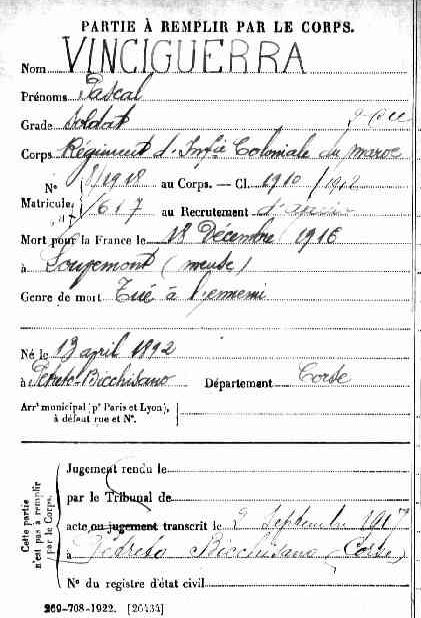 PARTIE À REMPLIR PAR LE CORPS.
Nom VINCIGUERRA
Prénoms Pascal
Grade Soldat
Corps Régiment d'Infie Coloniale du Maroc
N° 8/1918 au Corps. — Cl. 1910 / 1912
Matricule. /617 au Recrutement d'
Mort pour la France le 18 Décembre 1916
à Louvemont (meuse)
Genre de mort Tué à l'ennemi
Né le 13 april 1892
à Petreto-Bicchisano Département Corse
Arrt municipal (pr Paris et Lyon), à défaut rue et N°.
Cette partie n'est pas à remplir par le Corps.
Jugement rendu le
par le Tribunal de
acte ou jugement transcrit le 2 Septembre 1917
à Petreto Bicchisano (Corse)
N° du registre d'état civil
269-708-1922. [26434]